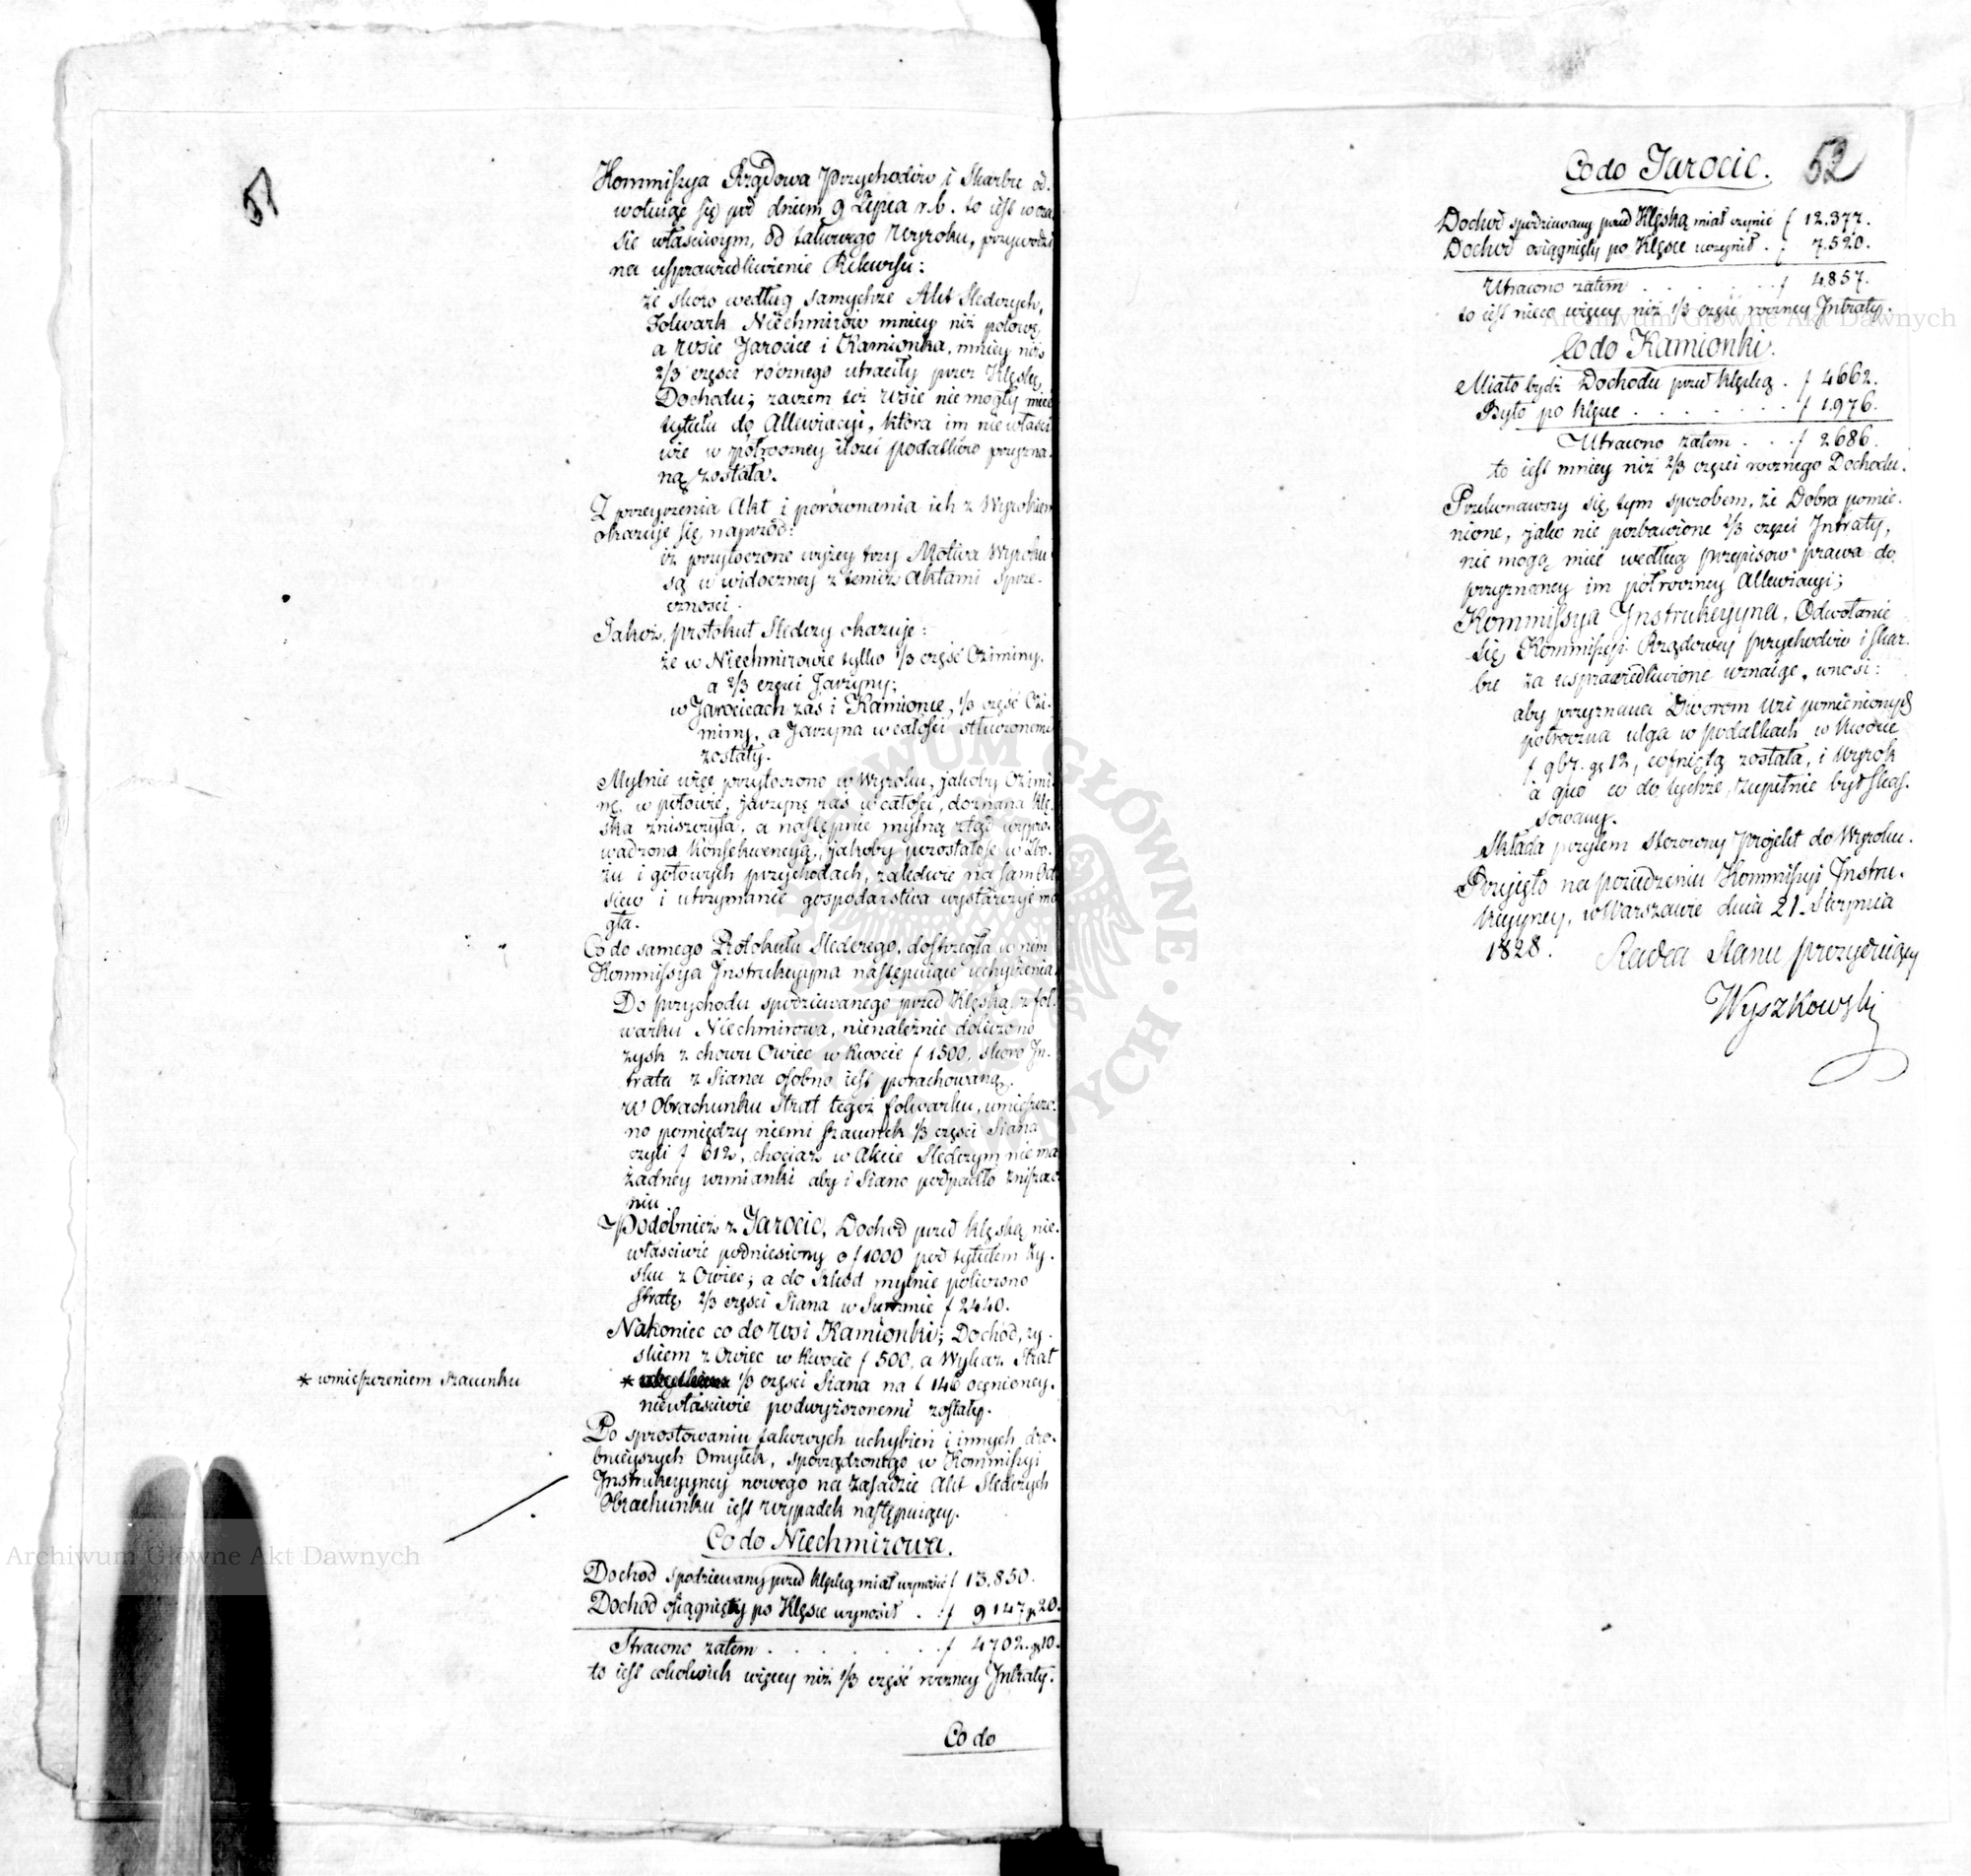 51
Kommissya Rządowa Przychodów i Skarbu od-
wołuiąc się pod dniem 9 Lipca r.b. to iest w cza
sie właściwym, od takowego Wyroku, przywodzi
na usprawiedliwienie Rekursu:
że skoro według samychże Akt Śledczych,
Folwark Niechmirów mniey niż połowę,
a Wsie Jarocice i Kamionka, mniey niż
2/3 części rocznego utraciły przez Klęskę
Dochodu; zaczem też Wsie nie mogły mieć
tytułu do Allewiacyi, która im niewłaści
wie w półroczney ilości podatków przyzna-
ną została.
Z przeyrzenia Akt i porównania ich z Wyrokiem
okazuje się naprzód:
iż przytoczone wyżey trzy Motiva Wyroku
są w widoczney z temiż Aktami sprze-
czności.
Jakoż, protokuł Śledczy okazuje:
że w Niechmirowie tylko 1/3 część Oziminy,
a 2/3 części Jarzyny;
w Jarocicach zas i Kamionce, 1/3 część Ozi-
miny, a Jarzyna w całości stłuczonemi
zostały.
Mylnie więc przytoczono w Wyroku, jakoby Ozimi-
nę w połowie, jarzynę zas w całości, doznana Klę-
ska zniszczyła, a następnie mylną ztąd wypro-
wadzona Konsekwencyą, jakoby pozostałość w Zbo-
żu i gotowych przychodach, zaledwie na sam Od
siew i utrzymanie gospodarstwa wystarczyć mo
gła.
Co do samego Protokułu Śledczego, dostrzegła w nim
Kommissya Instrukcyyna następuiące uchybienia
Do przychodu spodziewanego przed Klęską z fol-
warku Niechmirowa, nienależnie doliczono
zysk z chowu Owiec w kwocie f 1500, skoro In-
trata z Siana osobno iest porachowaną.
W Obrachunku Strat tegoż folwarku, umieszczo-
no pomiędzy niemi szacunek 1/3 części Siana
czyli f 612, chociaż w Akcie Śledczym nie ma
żadney wzmianki aby i Siano podpadło zniszcze
niu.
Podobnież z Jarocic, Dochód przed klęską nie-
właściwie podniesiony o f 1000 pod tytułem Zy-
sku z Owiec; a do Szkód mylnie policzono
stratę 2/3 części Siana w Summie f 2440.
Nakoniec co do Wsi Kamionki; Dochód, zy-
skiem z Owiec w kwocie f 500, a Wykaz Strat
* umieszczeniem szacunku
* 1/3 części Siana na f 146 ocenioney,
niewłaściwie podwyższonemi zostały.
Po sprostowaniu takowych uchybień i innych dro-
bnieyszych Omyłek, sporządzonego w Kommissyi
Instrukcyyney nowego na zasadzie Akt Śledczych
Obrachunku iest wypadek następuiący.
Co do Niechmirowa.
Dochod spodziewany przed klęską miał wynosić f 13.850.
Dochód osiągnięty po Klęsce wynosił . . f 9147 gr 20.
Stracono zatem . . . . . . . f 4702. gr 10.
to iest cokolwiek więcey niż 1/3 część roczney Intraty.
Co do
52
Co do Jarocic.
Dochód spodziewany przed Klęską miał czynić f 12.377.
Dochód osiągnięty po Klęsce uczynił . f 7.520.
Utracono zatem . . . . . . f 4857.
to iest nieco więcey niż 1/3 część roczney Intraty.
Co do Kamionki.
Miało bydź Dochodu przed klęską . f 4662.
Było po klęsce . . . . . . . f 1.976.
Utracono zatem . . . f 2686.
to iest mniey niż 2/3 części rocznego Dochodu.
Przekonawszy się tym sposobem, że Dobra pomie-
nione, jako nie pozbawione 2/3 części Intraty,
nie mogą mieć według przepisow prawa do
przyznaney im półroczney Allewiacyi;
Kommissya Instrukcyyna, Odwołanie
się Kommissyi Rządowey Przychodów i Skar-
bu za usprawiedliwione uznaiąc, wnosi:
aby przyznana Dworom Wsi pomienionych
półroczna ulga w podatkach w kwocie
f 967. gr 12, cofniętą została, i Wyrok
a quo co do tychże, zupełnie był skas-
sowany.
Składa przytem stosowny Projekt do Wyroku.
Przyjęto na posiedzeniu Kommissyi Instru-
kcyyney, w Warszawie dnia 21. Sierpnia
1828. Radca Stanu prezyduiący
Wyszkowski
Archiwum Główne Akt Dawnych
Archiwum Główne Akt Dawnych
ARCHIWUM GŁÓWNE AKT DAWNYCH